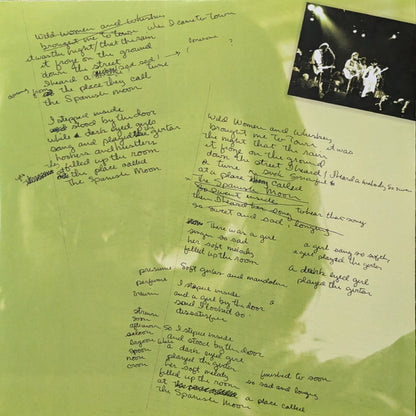 Wild women and whiskey
brought me to town when I came to town
it was the night that the rain
it froze on the ground
down the street
I heard a sad tune
coming from the place they call
the Spanish moon
I stepped inside
stood by the door
while a dark eyed girl
sang and played the guitar
hookers and hustlers
filled up the room
the place called
The Spanish Moon
Wild Women and Whiskey
brought me to town it was
the night that the rain
it froze on the ground
down the street I heard
a tune
at a place they called
The Spanish Moon
I went inside
to hear that song
so sweet and sad, longing
There was a girl
singing so sad
her soft melody
filled up the room
a girl sang so softly
a girl played the guitar
a dark eyed girl
played the guitar
presume soft guitar and mandolin
perfume
I stepped inside
and a girl by the door
said I looked so
dissatisfied
strewn
soon
afternoon
saloon
lagoon
spoon
noon
croon
So I stepped inside
and stood by the door
a dark eyed girl
played the guitar
her soft melody
filled up the room
at a place called
the Spanish Moon
finished too soon
so sad and longing